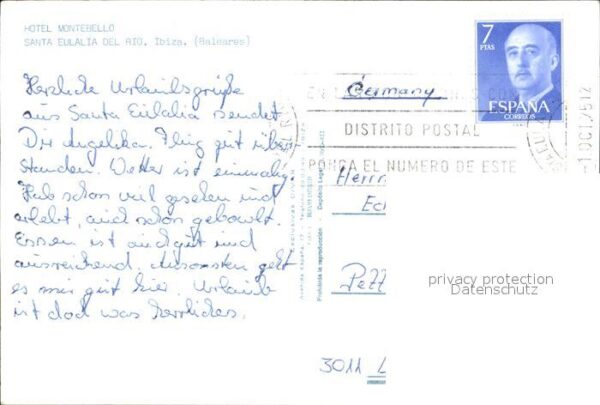 HOTEL MONTEBELLO
SANTA EULALIA DEL RIO, Ibiza. (Baleares)
7
PTAS
ESPAÑA
CORREOS
DISTRITO POSTAL
PONGA EL NUMERO DE ESTE
-1 OCT. 75 12
Herzliche Urlaubsgrüße
aus Santa Eulalia sendet
Dir Angelika. Flug gut über-
standen. Wetter ist einmalig.
Hab schon viel gesehen und
erlebt, auch schon gebault.
Essen ist auch gut und
ausreichend. Ansonsten geht
es mir gut hier. Urlaub
ist doch was herrliches.
Germany
Herrn
Ec
Pett
3011 L
Prohibida la reproducción
Depósito Legal
privacy protection
Datenschutz